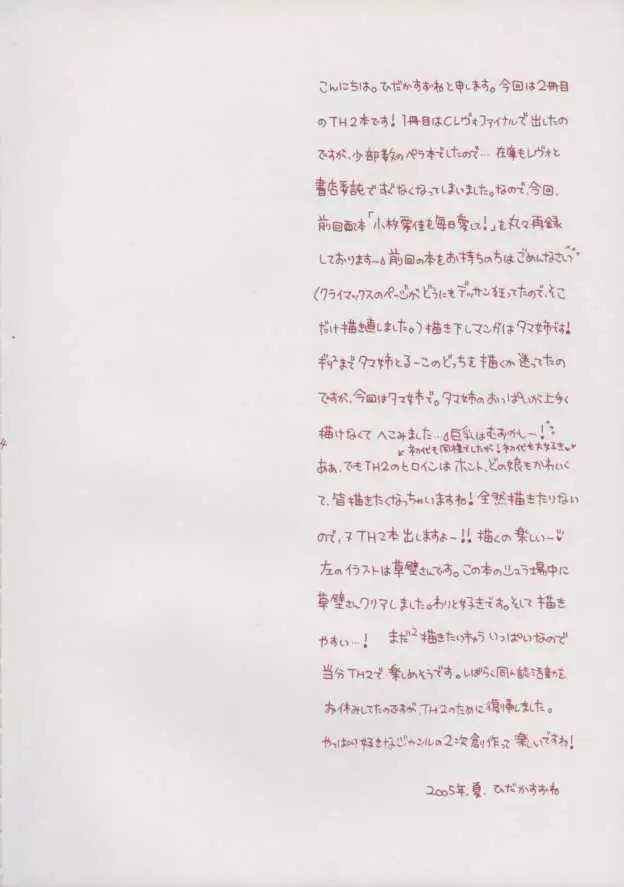 こんにちは。ひだかすずねと申します。今回は2冊目
のTH2本です！1冊目はCレヴォファイナルで出したの
ですが、少部数のペラ本でしたので… 在庫もレヴォと
書店委託ですぐなくなってしまいました。なので、今回、
前回配本「小牧愛佳を毎日愛して！」を丸々再録
しております〜。前回の本をお持ちの方はごめんなさいっ
(クライマックスのページがどうにもデッサン狂ってたので、そこ
だけ描き直しました。)描き下しマンガはタマ姉です！
ギリ²までタマ姉とるーこのどっちを描くか迷ってたの
ですが、今回はタマ姉で。タマ姉のおっぱいが上手く
描けなくてへこみました…。巨乳はむずかしー！
初代も同様でしたが！初代も大好き♥
ああ、でもTH2のヒロインはホント、どの娘もかわいく
て、皆描きたくなっちゃいますね！全然描きたりない
ので、又TH2本出しますよ〜!! 描くの楽しい〜♥
左のイラストは草壁さんです。この本のシュラ場中に
草壁さんクリアしました。わりと好きです。そして描き
やすい…！ まだ²描きたいキャラいっぱいなので
当分TH2で楽しめそうです。しばらく同人誌活動を
お休みしてたのですが、TH2のために復帰しました。
やっぱり好きなジャンルの2次創作って楽しいですね！
2005年、夏、ひだかすずね